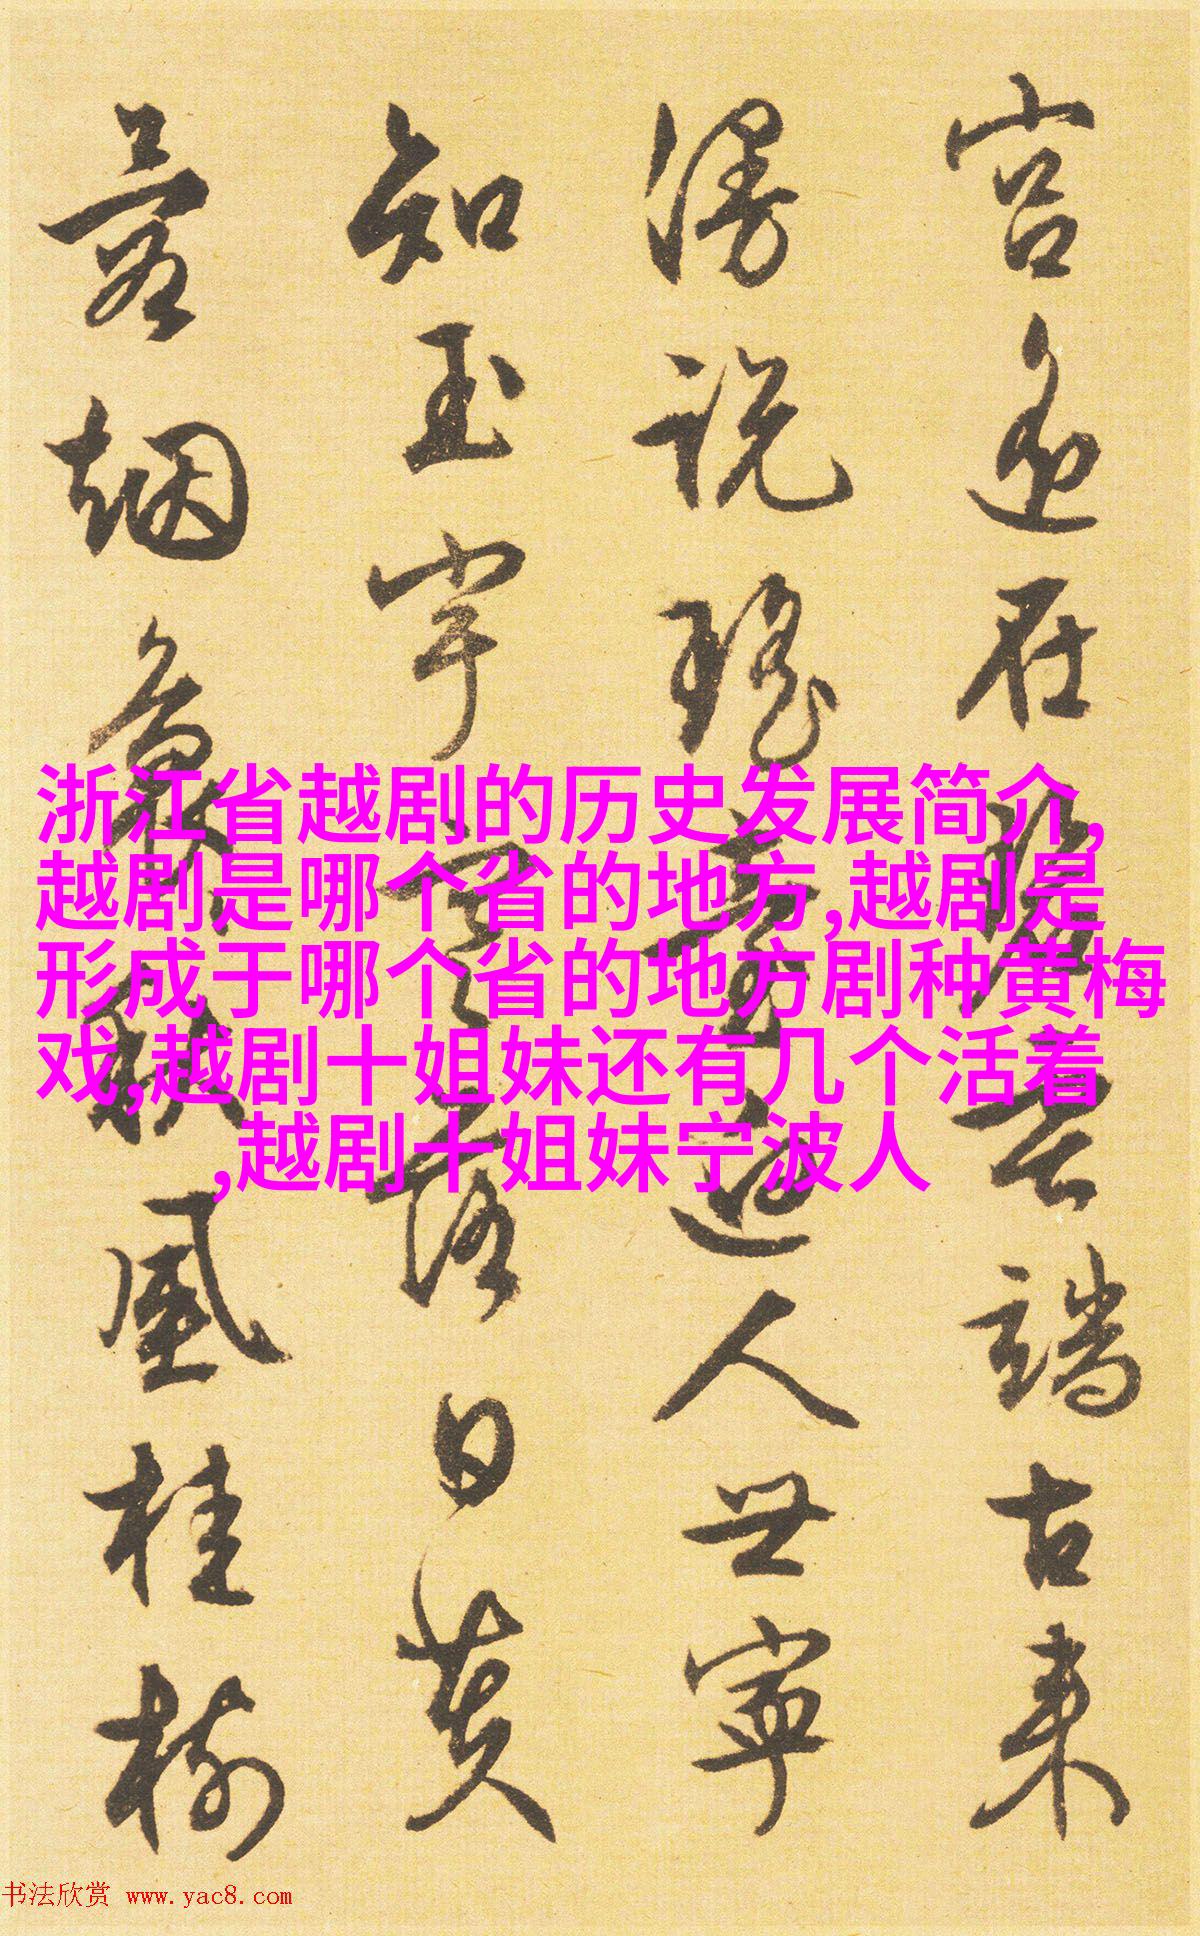 浙江省越剧的历史发展简介,
越剧是哪个省的地方,越剧是
形成于哪个省的地方剧种黄梅
戏,越剧十姐妹还有几个活着
,越剧十姐妹宁波人
宫 在 端古来
漫説瑶臺 人世寧
知玉宇 落日黄
烟 秋風桂樹
书法欣赏 www.yac8.com